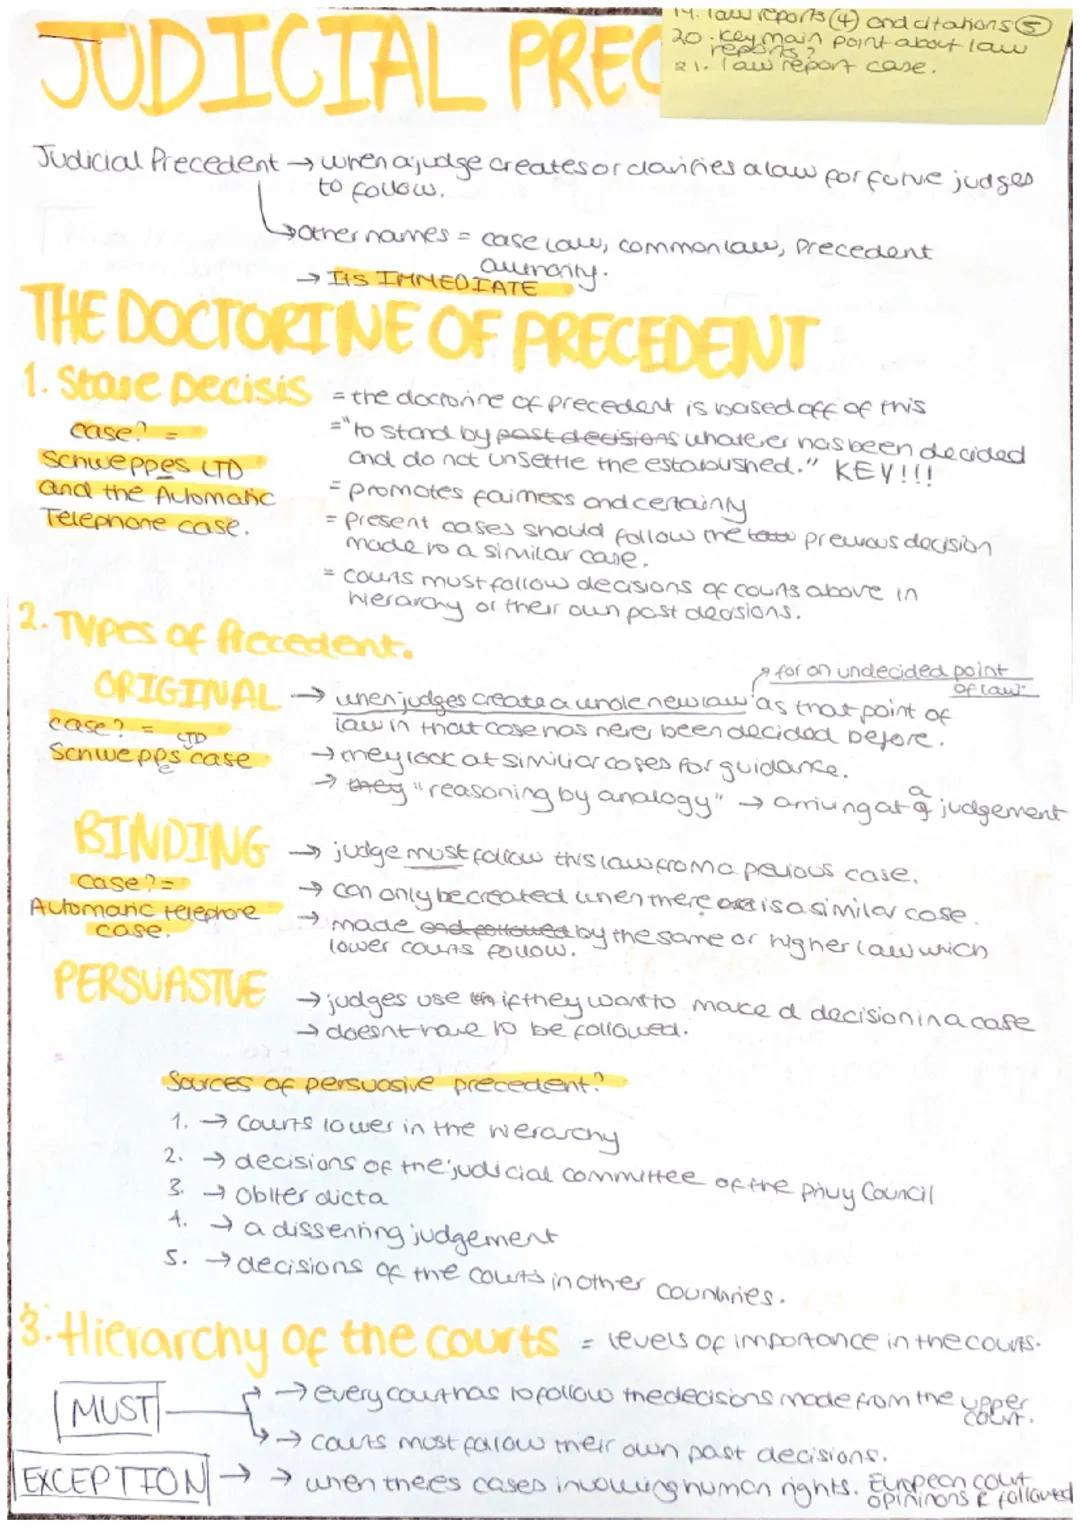 19. law reports (4) and citations (5)
20. key main point about law
reports?
21. law report case.
JUDICIAL PREC
Judicial Precedent → when a judge creates or clarifies a law for future judges
to follow.
→ other names = case law, common law, Precedent
authority.
→ Its IMMEDIATE
THE DOCTORINE OF PRECEDENT
1. Stare Decisis = the doctorine of precedent is based off of this
case? = ="to stand by past decisions whatever has been decided
and do not unsettle the established." KEY!!!
Schweppes LTD
and the Automatic = promotes fairness and certainty
Telephone case. = Present cases should follow the law previous decision
made to a similar case.
= courts must follow decisions of courts above in
hierarchy or their own past decisions.
2. Types of Precedent.
for an undecided point
of law.
ORIGINAL → when judges create a whole new law as that point of
law in that case has never been decided before.
case? =
LTD
Schweppes case → they look at similiar cases for guidance.
→ they "reasoning by analogy" → arriving at a judgement
BINDING → judge must follow this law from a pevious case.
case? = → can only be created when there is a similar case.
Automatic telephone → made and followed by the same or higher law which
case. lower courts follow.
PERSUASIVE → judges use if they want to make a decision in a case
→ doesnt have to be followed.
Sources of persuasive precedent?
1. → Courts lower in the hierarchy
2. → decisions of the judicial committee of the privy Council
3. → Obiter dicta
4. → a dissenting judgement
5. → decisions of the courts in other countries.
3. Hierarchy of the courts = levels of importance in the courts.
MUST → every court has to follow the decisions made from the upper
court.
→ courts must follow their own past decisions.
EXCEPTION → → when theres cases involving human rights. European court
opininons R followed